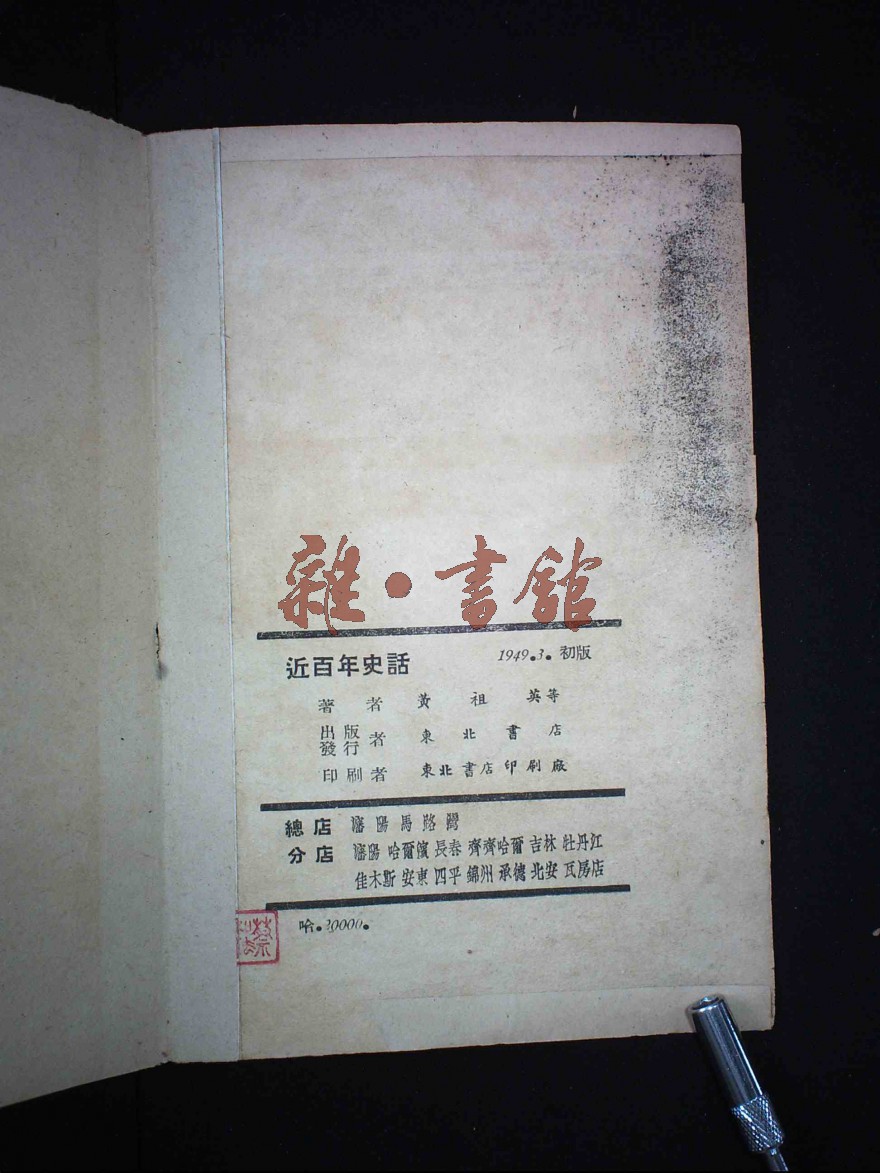 雜·書館
近百年史話 1949.3. 初版
著者 黃祖英等
出版
發行者 東北書店
印刷者 東北書店印刷廠
總店 瀋陽馬路灣
分店 瀋陽 哈爾濱 長春 齊齊哈爾 吉林 牡丹江
佳木斯 安東 四平 錦州 承德 北安 瓦房店
哈.30000.